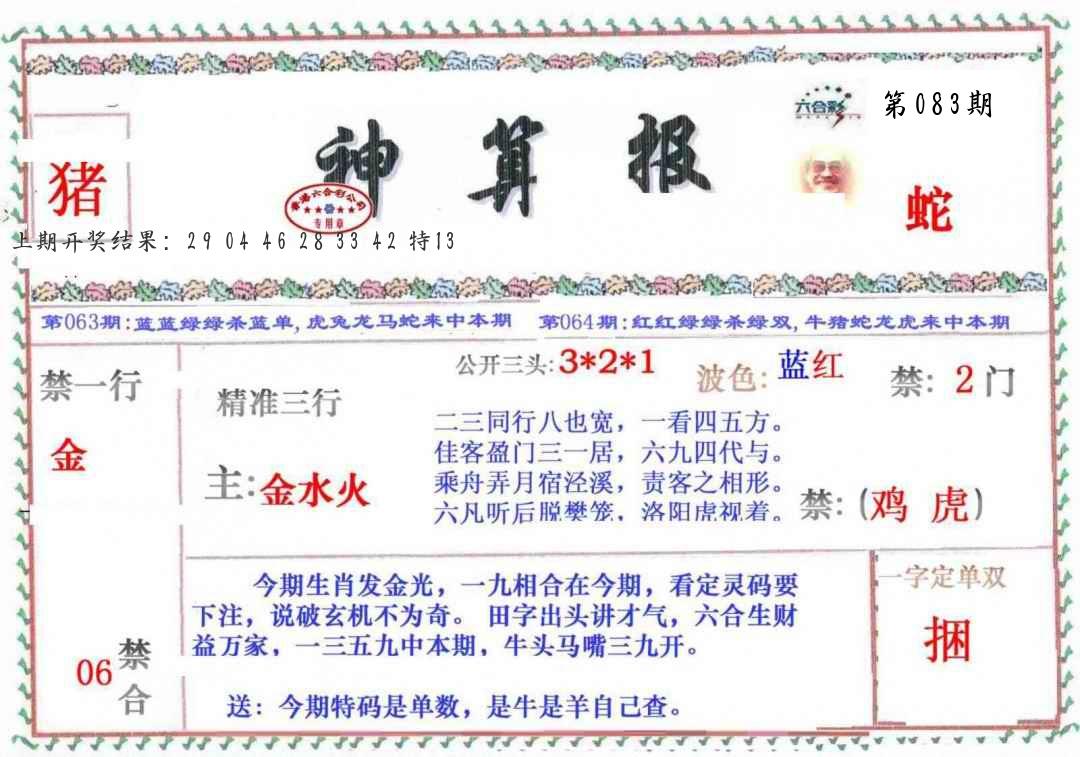 六合彩
第083期
神算报
猪
香港六合彩公司
专用章
蛇
上期开奖结果：29 04 46 28 33 42 特13
第063期:蓝蓝绿绿杀蓝单,虎兔龙马蛇来中本期
第064期:红红绿绿杀绿双,牛猪蛇龙虎来中本期
公开三头:3*2*1
波色:蓝红
禁: 2门
禁一行
金
精准三行
主:金水火
二三同行八也宽，一看四五方。
佳客盈门三一居，六九四代与。
乘舟弄月宿泾溪，责客之相形。
六凡听后脱樊笼，洛阳虎视着。
禁:(鸡 虎)
今期生肖发金光，一九相合在今期，看定灵码要
下注，说破玄机不为奇。田字出头讲才气，六合生财
益万家，一三五九中本期，牛头马嘴三九开。
送：今期特码是单数，是牛是羊自己查。
06禁合
一字定单双
捆